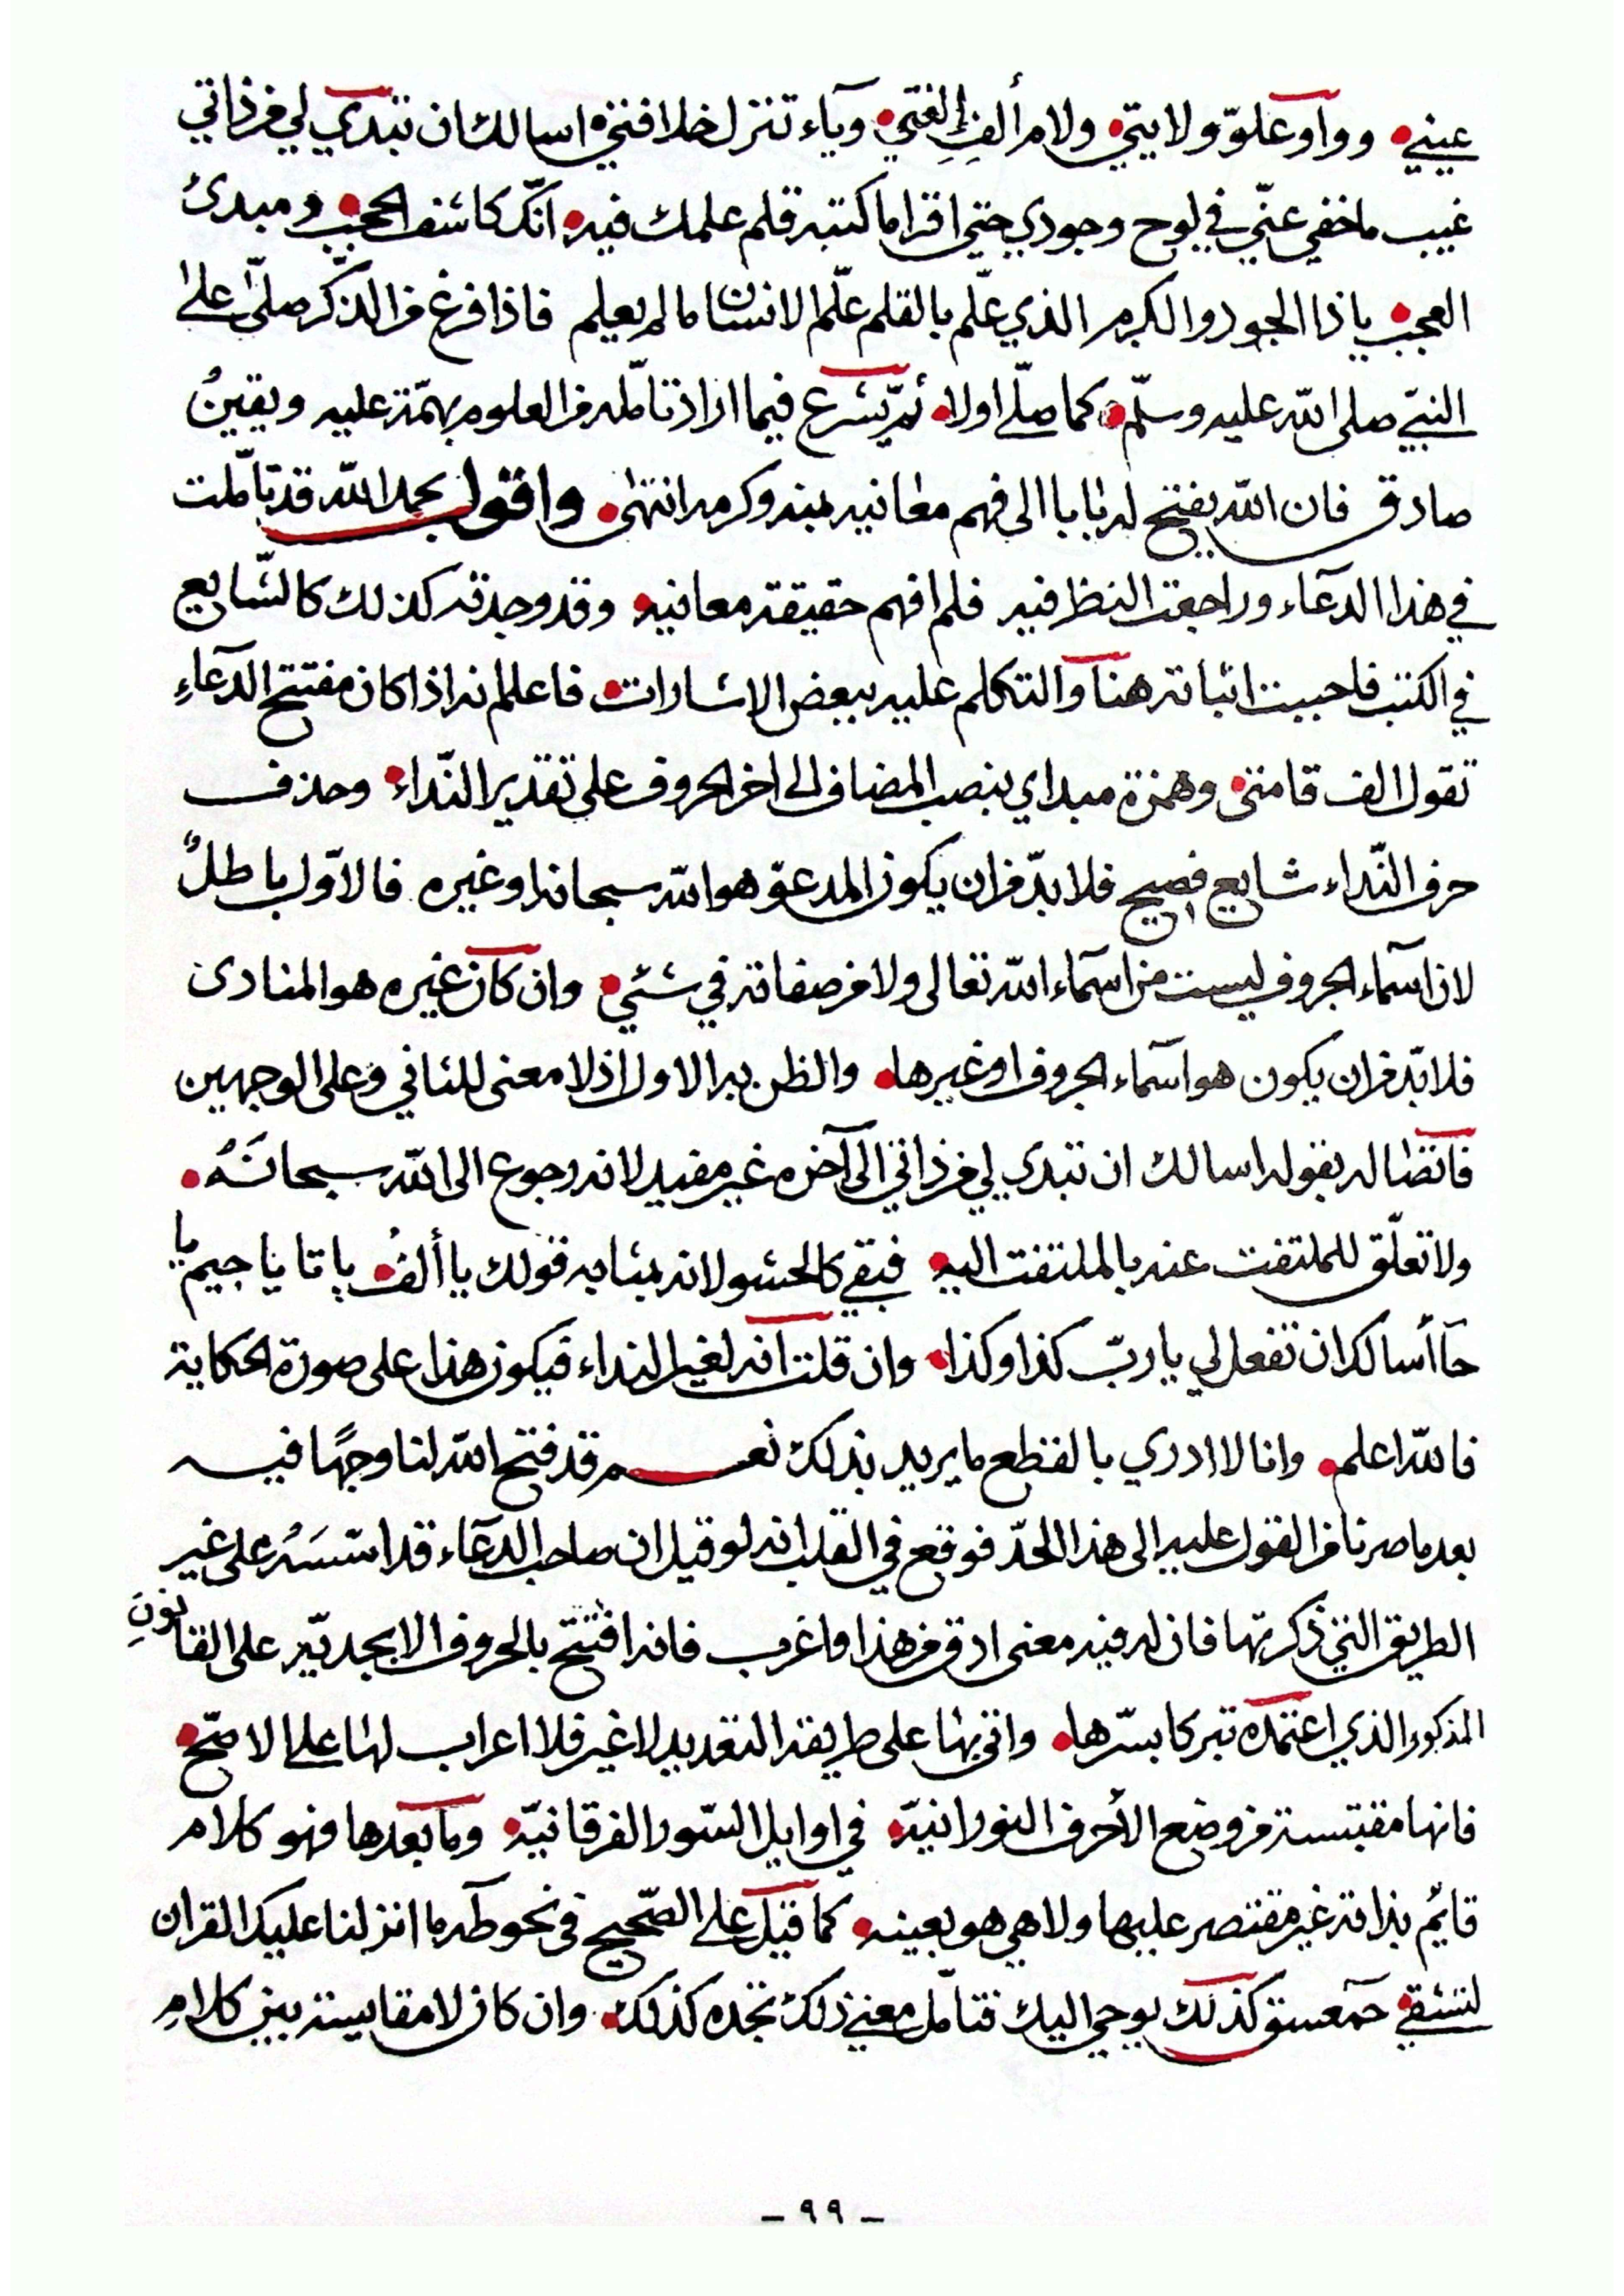 عيني وواو علوّ ولايتي ولام ألفِ إلفتي وياء تنزل خلافتي اسالك ان تبدي لي من ذاتي
غيب ما خفي عنّي في لوح وجودي حتى اقرا ما كتبه قلم علمك فيه انّك كاشف الحجب ومبدئ
العجب ياذا الجود والكرم الذي علّم بالقلم علّم الانسان ما لم يعلم فاذا فرغ من الذكر صلّى على
النبيّ صلى الله عليه وسلّم كما صلّا اولا ثمّ يشرع فيما اراد تأمّله من العلوم بهمّة عليه ويقينٍ
صادق فان الله يفتح له بابا الى فهم معانيه بمنه وكرمه انتهى واقول بحمد الله قد تأمّلت
في هذا الدعآء وراجعت النظر فيه فلم افهم حقيقة معانيه وقد وجدته كذلك كالشّايع
في الكتب فاحببت اثباته هنا والتكلم عليه ببعض الاشارات فاعلم انه اذا كان مفتتح الدعآءِ
تقول الف قامتي وهمزة مبداي بنصب المضاف الى اخر الحروف على تقدير النّداء وحذف
حرف النّداء شايع فصيح فلا بدّ من ان يكون المدعوّ هو الله سبحانه او غيره فالاوّل باطلٌ
لان اسماء الحروف ليست من اسماء الله تعالى ولا من صفاته في شئي وان كان غيره هو المنادى
فلا بدّ من ان يكون هو اسماء الحروف او غيرها والظن به الاول اذ لا معنى للثاني وعلى الوجهين
فاتصاله بقوله اسالك ان تبدي لي من ذاتي الى آخره غير مفيد لانه رجوع الى الله سبحانَهُ
ولا تعلّق للملتفت عنه بالملتفت اليه فبقي كالحشو لانه بمثابه قولك يا ألفُ يا با يا جيم يا
حآ أسالك ان تفعل لي يا ربّ كذا وكذا وان قلت انه لغير النداء فيكون هذا على صورة الحكاية
فالله اعلم وانا لا ادري بالقطع ما يريد بذلك نعم قد فتح الله لنا وجهًا فيه
بعد ما صرنا من القول عليه الى هذا الحدّ فوقع في القلب انه لو قيل ان صاحب الدعآء قد اسّسَهُ على غير
الطريق التي ذكرتها فان له فيه معنى ادق من هذا واغرب فانه افتتح بالحروف الابجديّه على القانونِ
المذكور الذي اعتمده تبركا بسّرها واتى بها على طريقة التعديد لا غير فلا اعراب لها على الاصّح
فانها مقتبسة من وضع الأحرف النورانيّة في اوايل السّور الفرقانيّة وما بعدها فهو كلام
قايّم بذاته غير مقتصر عليها ولا هي هو بعينه كما قيل على الصّحيح في نحو طه ما انزلنا عليك القران
لتشقي حمعسق كذلك يوحي اليك فتامّل معني ذلك تجده كذلك وان كان لا مقايسة بين كلامِ
- ٩٩ -